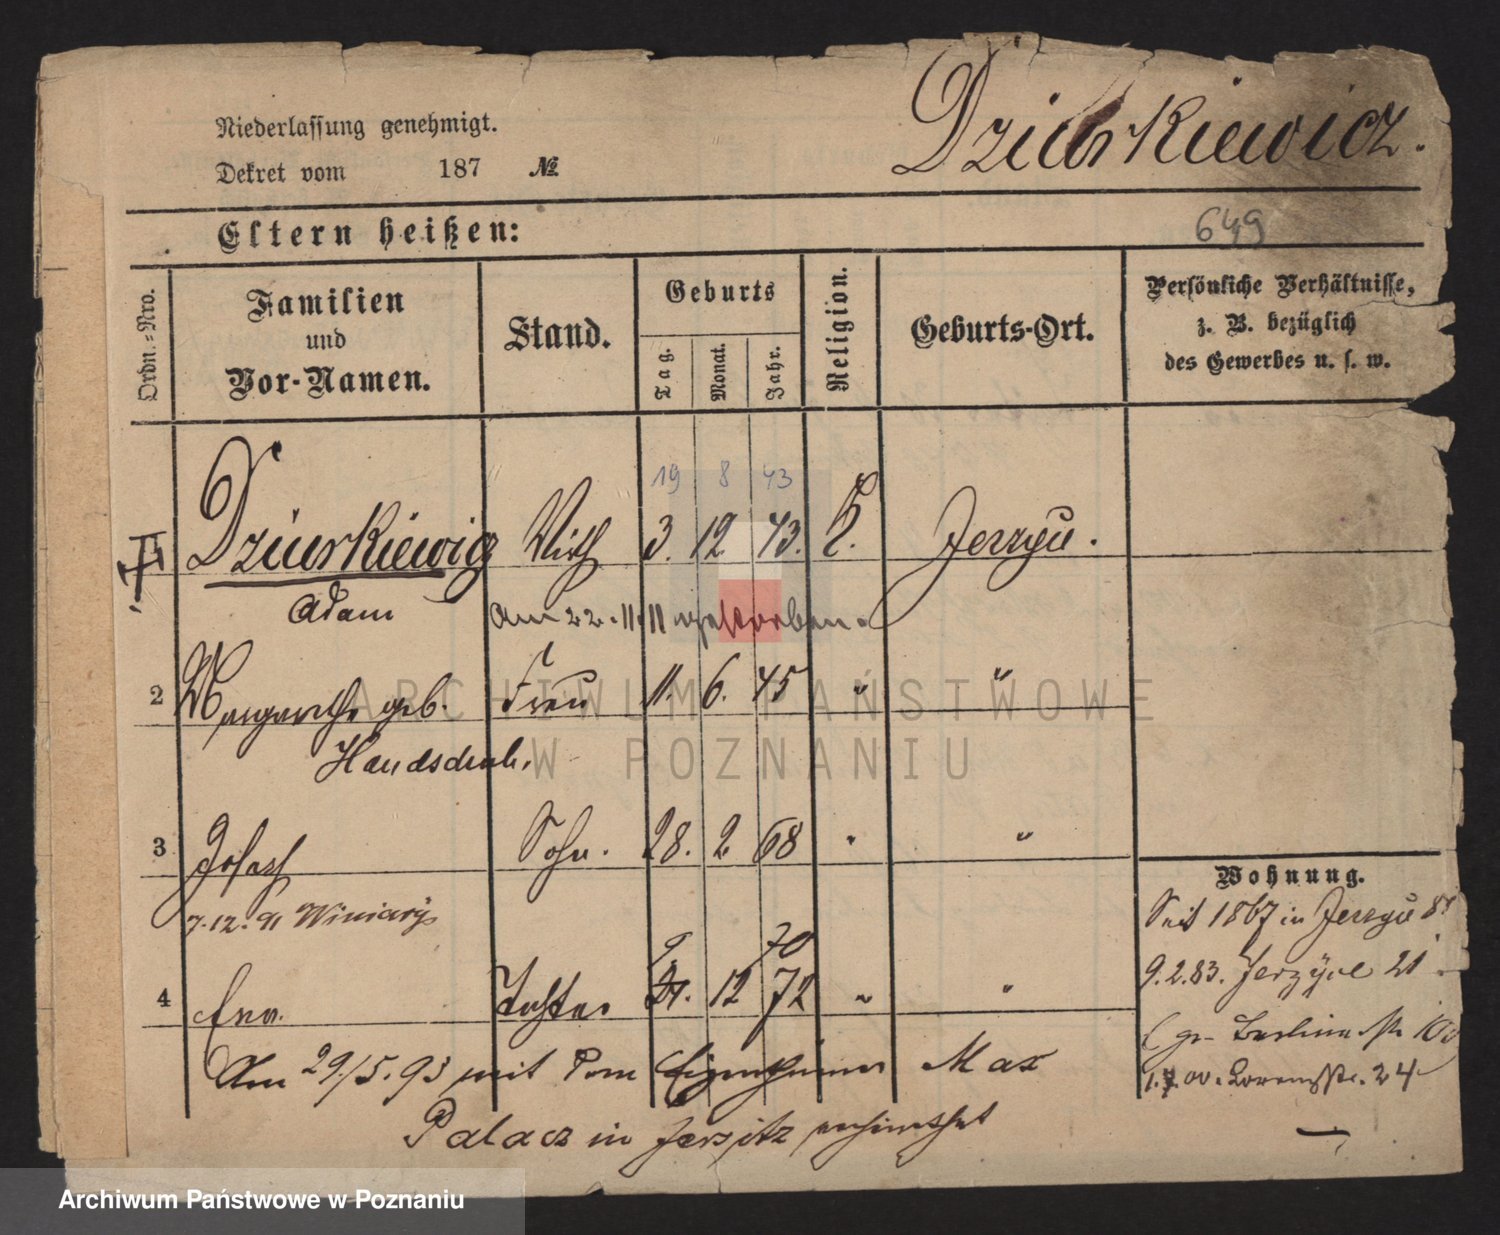 Niederlassung genehmigt.
Dekret vom 187 №
Dziurkiewicz.
Eltern heißen:
649
Ordn.-Nro.
Familien
und
Vor-Namen.
Stand.
Geburts
Tag.
Monat.
Jahr.
Religion.
Geburts-Ort.
Persönliche Verhältnisse,
z. B. bezüglich
des Gewerbes u. s. w.
19 8 43
Dziurkiewicz Wirth 3. 12. 43. K. Jerzyce.
Adam Am 22.11.11 gestorben.
2 Margarethe geb. Frau 11. 6. 45 " "
Handschuh.
3 Josef Sohn. 28. 2 68 " "
7.12.91 Winiary
9 70
4 Eva. Tochter 24. 12 72 " "
Am 29/5.93 mit dem Eigenthümer Max
Palacz in Jersitz verheirathet
Wohnung.
Seit 1867 in Jerzyce
9.2.83. Jerzyce 21
gr. Berliner str.
24
ARCHIWUM PAŃSTWOWE
W POZNANIU
Archiwum Państwowe w Poznaniu